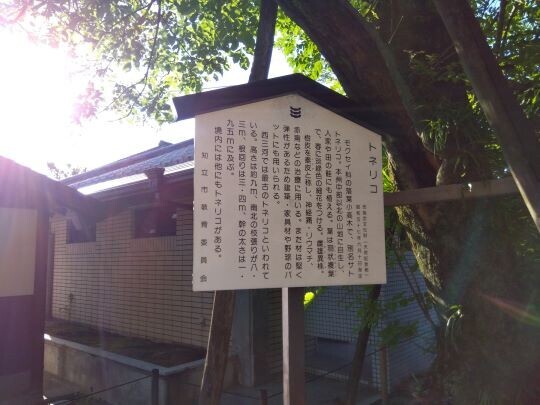 トネリコ
モクセイ科の落葉小高木で、別名サト
トネリコ、本州中部以北の山地に自生し、
人家や田の畦にも植える。葉は羽状複葉
で、春に淡緑色の細花をつける。雌雄異株。
樹皮を秦皮と称し、神経痛、リウマチ、
赤痢などの治療に用いる。また材は堅く
弾性があるため建築・家具材や野球のバ
ットにも用いられる。
西三河では最古のトネリコといわれて
いる。高さは約九m、南北の枝張りが八・
三m、根回りは三・四m、幹の太さは一・
九五mに及ぶ。
境内には他にもトネリコがある。
知立市教育委員会